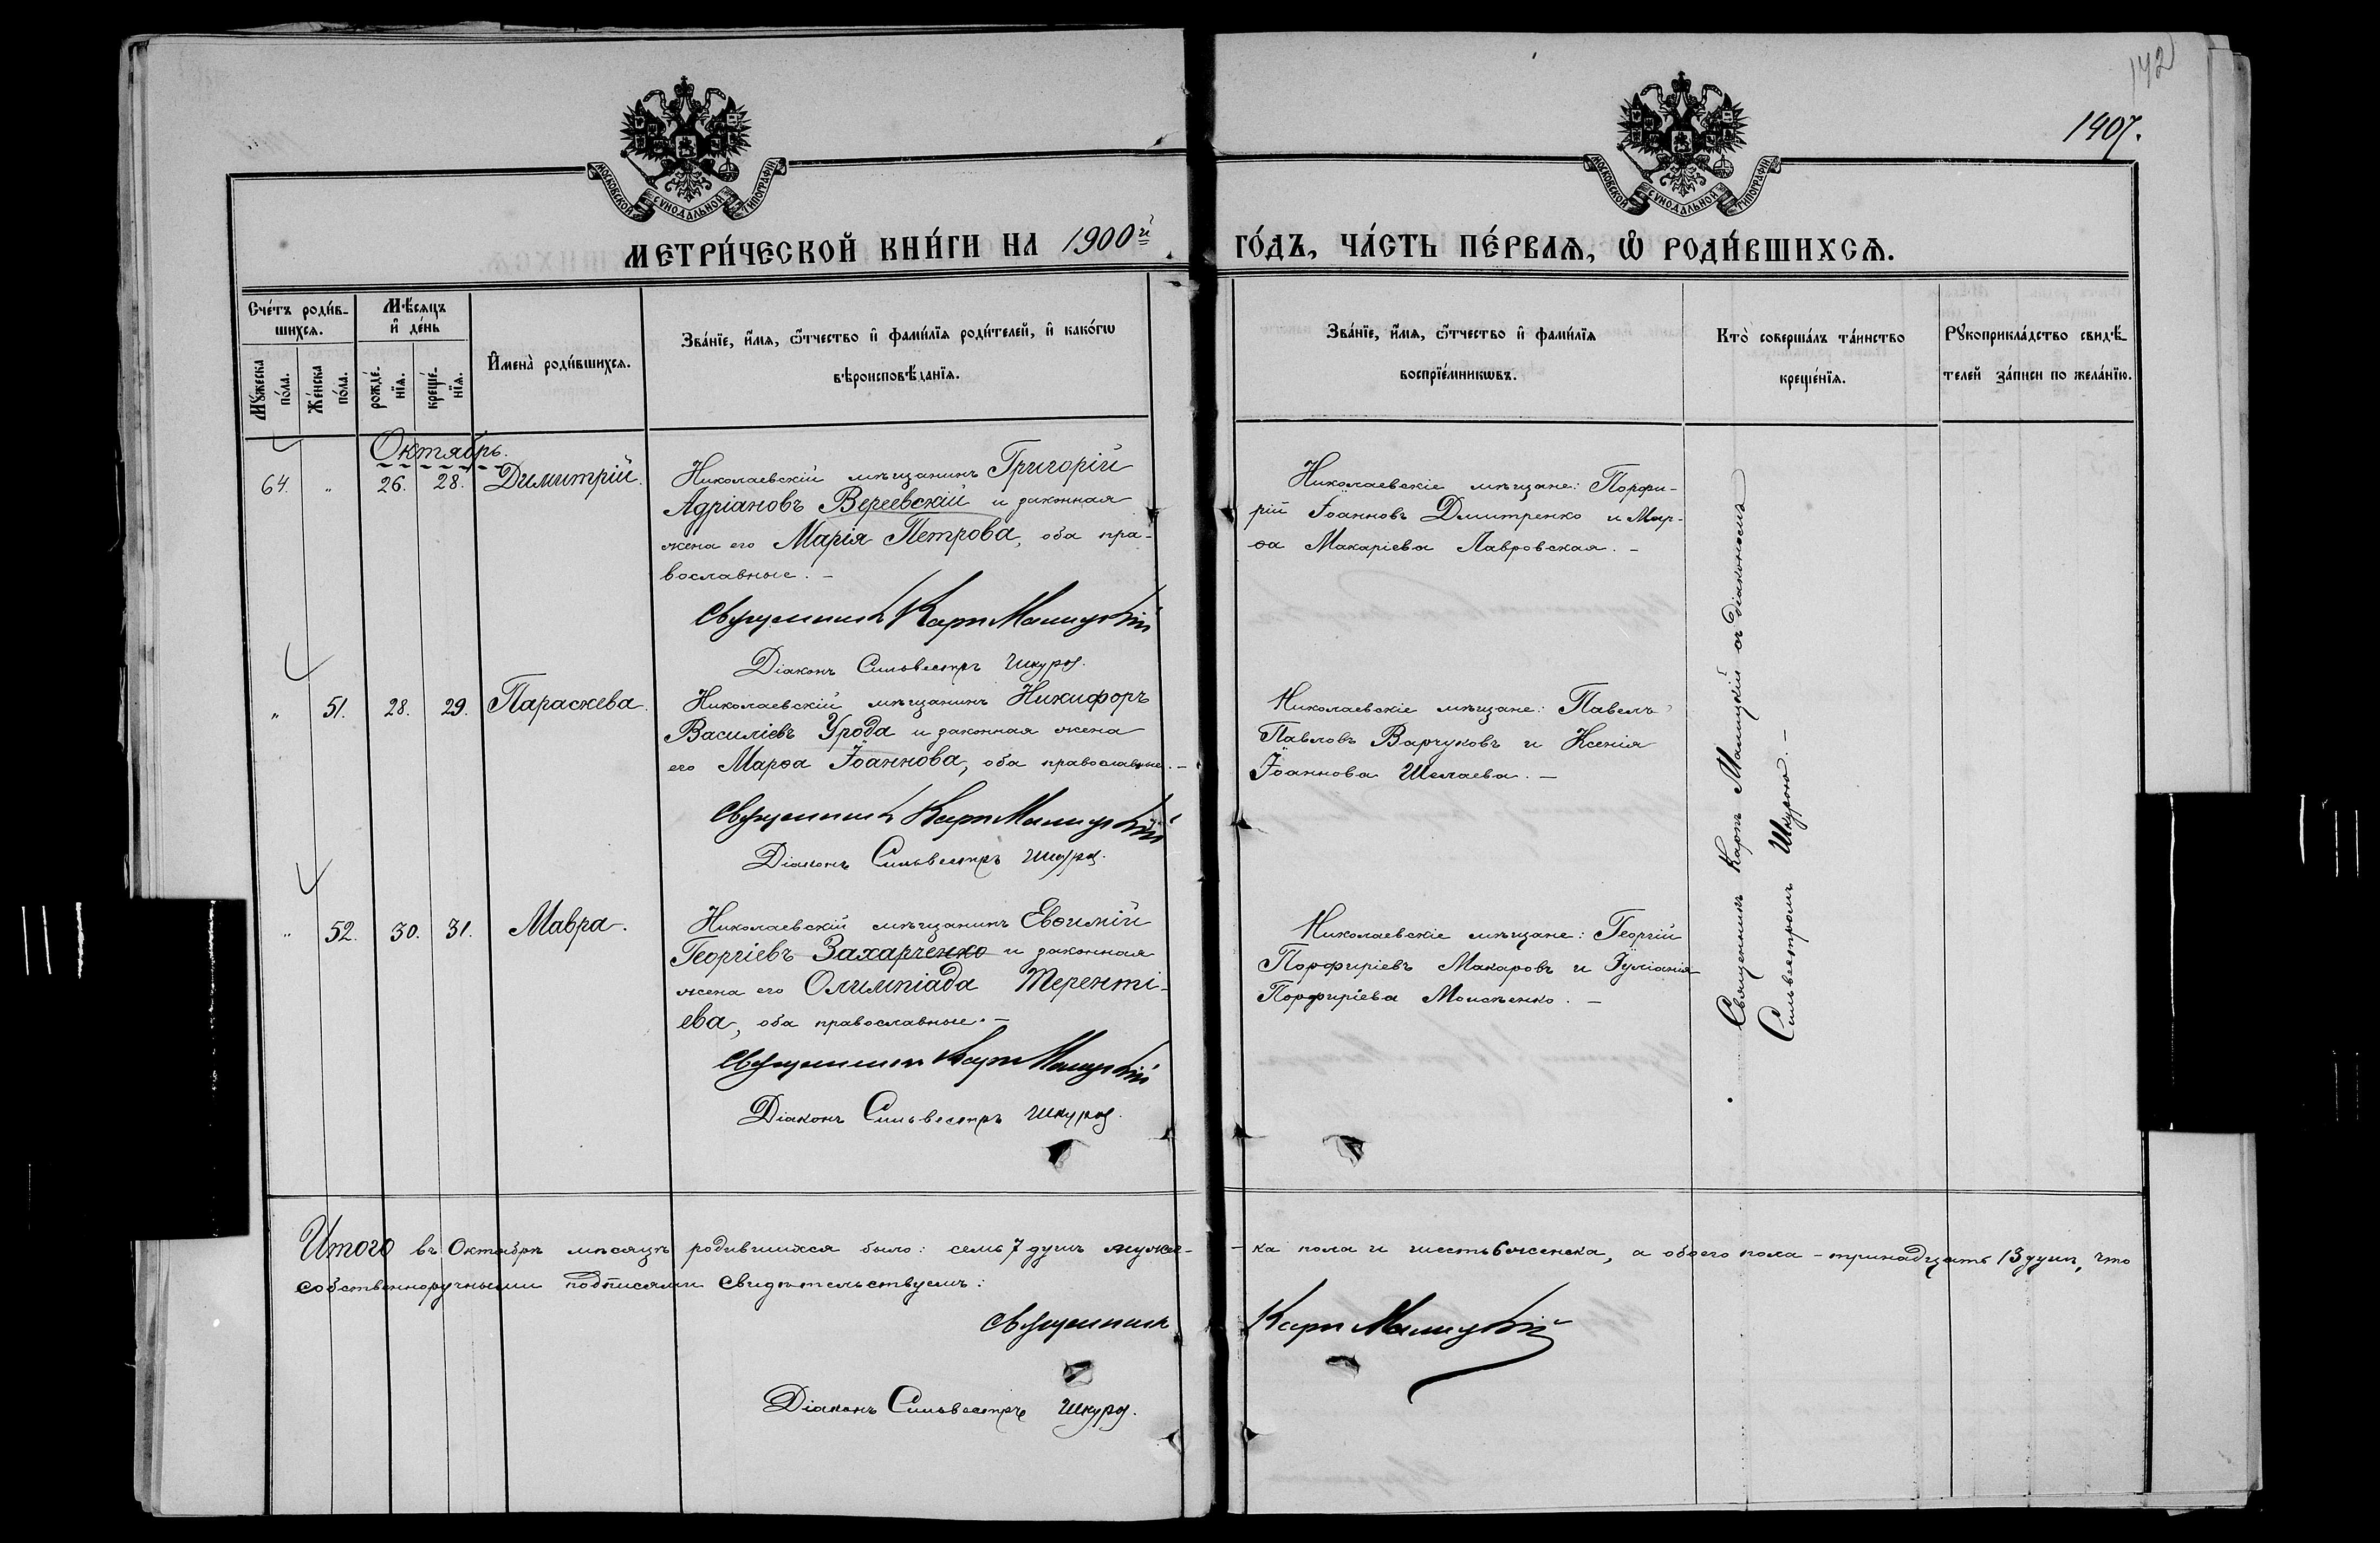 142
1407.
МОСКОВСКОЙ СѴНОДАЛЬНОЙ ТИПОГРАФІИ
МОСКОВСКОЙ СѴНОДАЛЬНОЙ ТИПОГРАФІИ
МЕТРИ́ЧЕСКОЙ КНИ́ГИ НА 1900й
ГО́ДЪ, ЧА́СТЬ ПЕ́РВАѦ, Ѡ҆ РОДИ́ВШИХСѦ.
Сче́тъ роди́в-
шихсѧ.
Мꙋ́жеска
по́ла.
Же́нска
по́ла.
Мѣ́сѧцъ
и҆ де́нь
рожде́-
нїѧ.
креще́-
нїѧ.
И҆мена̀ роди́вшихсѧ.
Зва́нїе, и҆́мѧ, ѻ҆́тчество и҆ фами́лїѧ роди́телей, и҆ како́гѡ
вѣроисповѣ́данїѧ.
Зва́нїе, и҆́мѧ, ѻ҆́тчество и҆ фами́лїѧ
воспрїе́мникѡвъ.
Кто̀ соверша́лъ та́инство
креще́нїѧ.
Рꙋкоприкла́дство свидѣ́-
телей за́писи по жела́нїю.
Октябрь.
64. " 26. 28. Димитрій.
Николаевскій мѣщанинъ Григорій
Адріановъ Вереевскій и законная
жена его Марія Петрова, оба пра-
вославные. –
Священникъ Карпъ Малицкій
Діаконъ Сильвестръ Шкура.
Николаевскіе мѣщане: Порфи-
рій Іоанновъ Дмитренко и Мар-
ѳа Макаріева Лавровская. –
" 51. 28. 29. Параскева.
Николаевскій мѣщанинъ Никифоръ
Василіевъ Урода и законная жена
его Марѳа Іоаннова, оба православные. –
Священникъ Карпъ Малицкій
Діаконъ Сильвестръ Шкура.
Николаевскіе мѣщане: Павелъ
Павловъ Варчуковъ и Ксенія
Іоаннова Шелаева. –
" 52. 30. 31. Мавра.
Николаевскій мѣщанинъ Евѳимій
Георгіевъ Захарченко и законная
жена его Олимпіада Терентi-
ева, оба православные. –
Священникъ Карпъ Малицкій
Діаконъ Сильвестръ Шкура.
Николаевскіе мѣщане: Георгій
Порфиріевъ Макаровъ и Іуліанія
Порфиріева Моисѣенко. –
Священникъ Карпъ Малицкій съ діакономъ
Сильвестромъ Шкурою. –
Итого въ Октябрѣ мѣсяцѣ родившихся было: семь 7 душъ мужес-
-ка пола и шесть 6 женска, а обоего пола – тринадцать 13 душъ, что
собственноручными подписями свидѣтельствуемъ:
Священникъ Карпъ Малицкій
Діаконъ Сильвестръ Шкура.